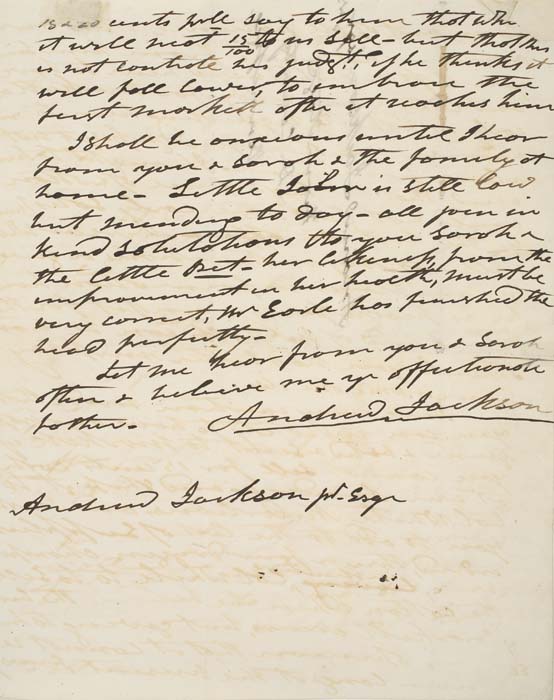 18 a 20 cents will say to him that when
it will neat 15/100 to us sell - but that this
is not controle his judgt. if he thinks it
will fall lower, to embrace the
first market after it reaches him
I shall be anxious until I hear
from you & Sarah & the family at
home - Little John is still low
but mending to day - all join in
kind salutations to you Sarah &
the little Pet - her likeness, from the
improvement in her health, must be
very correct, Mr Earle has finished the
head perfectly -
Let me hear from you & Sarah
often & believe me yr affectionate
father -
Andrew Jackson
Andrew Jackson jr. Esqr